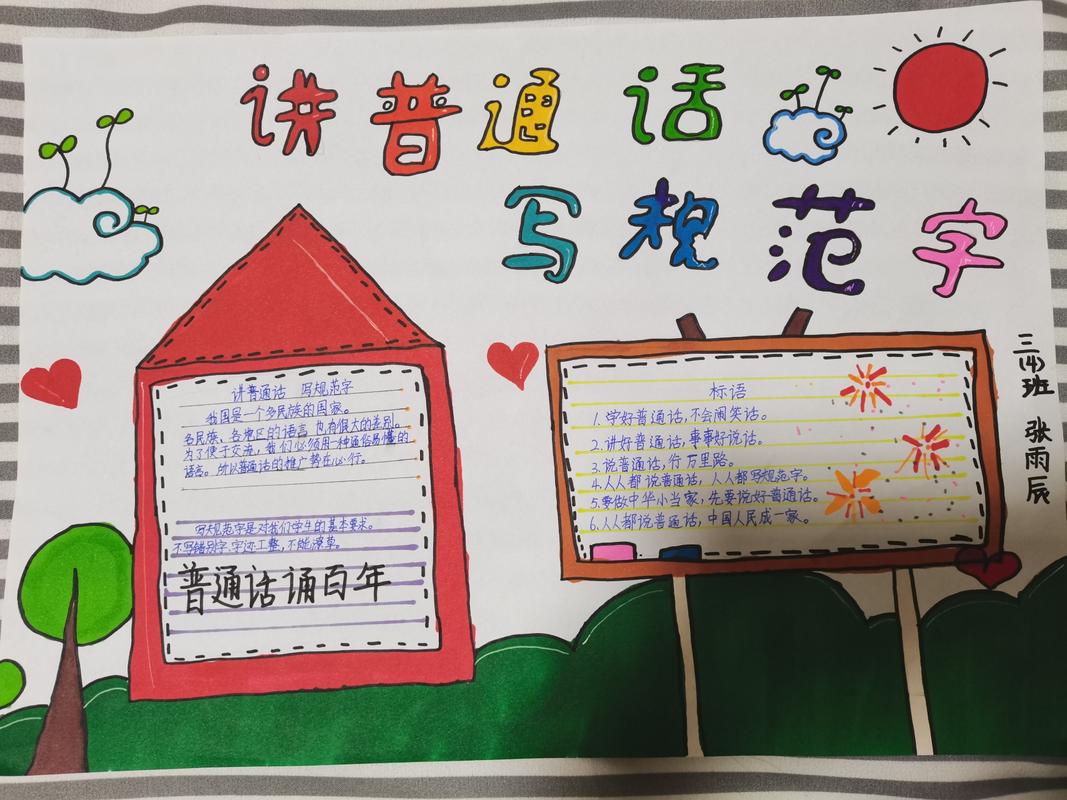 讲普通话
写规范字
讲普通话 写规范字
我国是一个多民族的国家。
多民族、各地区的语言也有很大的差别。
为了便于交流,我们必须用一种通俗易懂的
语言。所以普通话的推广势在必行。
写规范字是对我们学生的基本要求。
不写错别字,字迹工整,不能潦草。
普通话诵百年
标语
1.学好普通话,不会闹笑话。
2.讲好普通话,事事好说话。
3.说普通话,行万里路。
4.人人都说普通话,人人都写规范字。
5.要做中华小当家,先要说好普通话。
6.人人都说普通话,中国人民成一家。
三(4)班 张雨辰